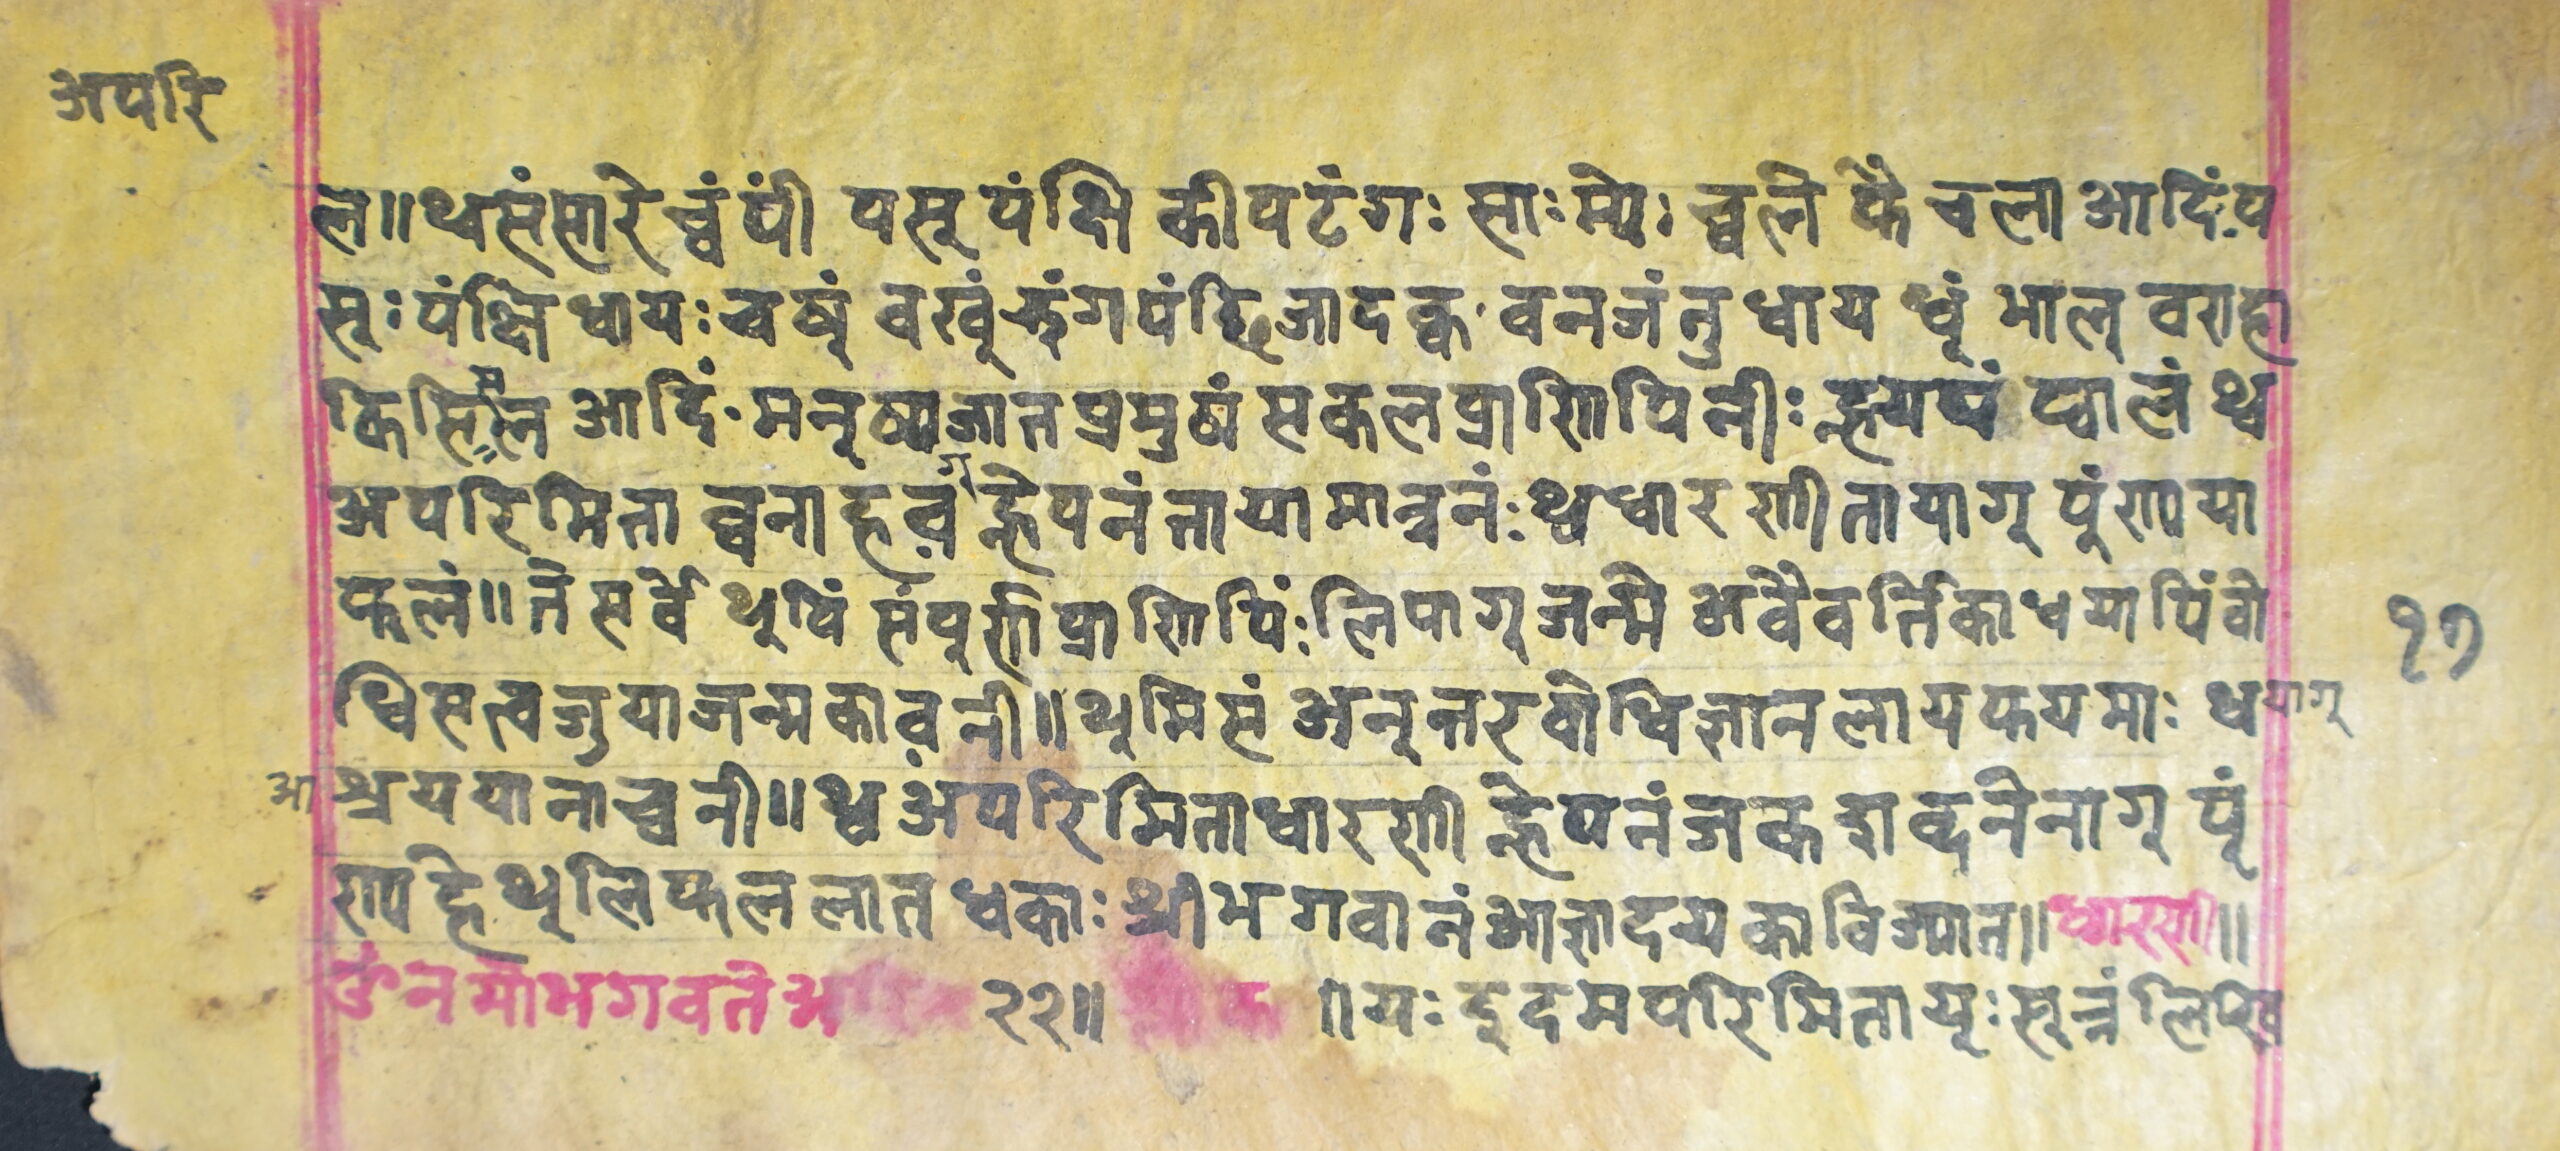 अपरि
ल॥थसंसारे च्वंपीं पसू पंक्षि कीपटंगः साःम्येः च्वले फै चला आदिं.प
सूः पंक्षि धायः चष्वं वखूं झंगपंछि जादक्व वनजंतु धाय ध्वूं भालू वराहा
किसिसल आदिं. मनूष्य जात प्रमुखं सकल प्राणिपिनीः ह्नयपं च्वालं थ्व
अपरिमिता च्वनाह्नवंगु ह्नेपनं तायामात्रनंः थ्वधारणी तायागू पुंण्या
फलं॥ ते सर्वे थूपिं संपुर्ण प्राणिपिंः लिपागू जन्मे अवैवर्त्तिकाधयापिं वो
धिसत्वजुया जन्मकावनी॥ थुमिसं अनूत्तरवोधिज्ञान लायफयमाः धयागू
आश्रययाना च्वनी॥ थ्व अपरिमिताधारणी ह्नेपनं जक शव्दनेनागू पूं
ण्य हे थूलि फल लात धकाः श्रीभगवानं आज्ञादयका विज्यात॥ धारणी॥
ॐनमोभगवते अ २२॥ ॥यः इदमपरिमितायूःसूत्रं लिखि
१७